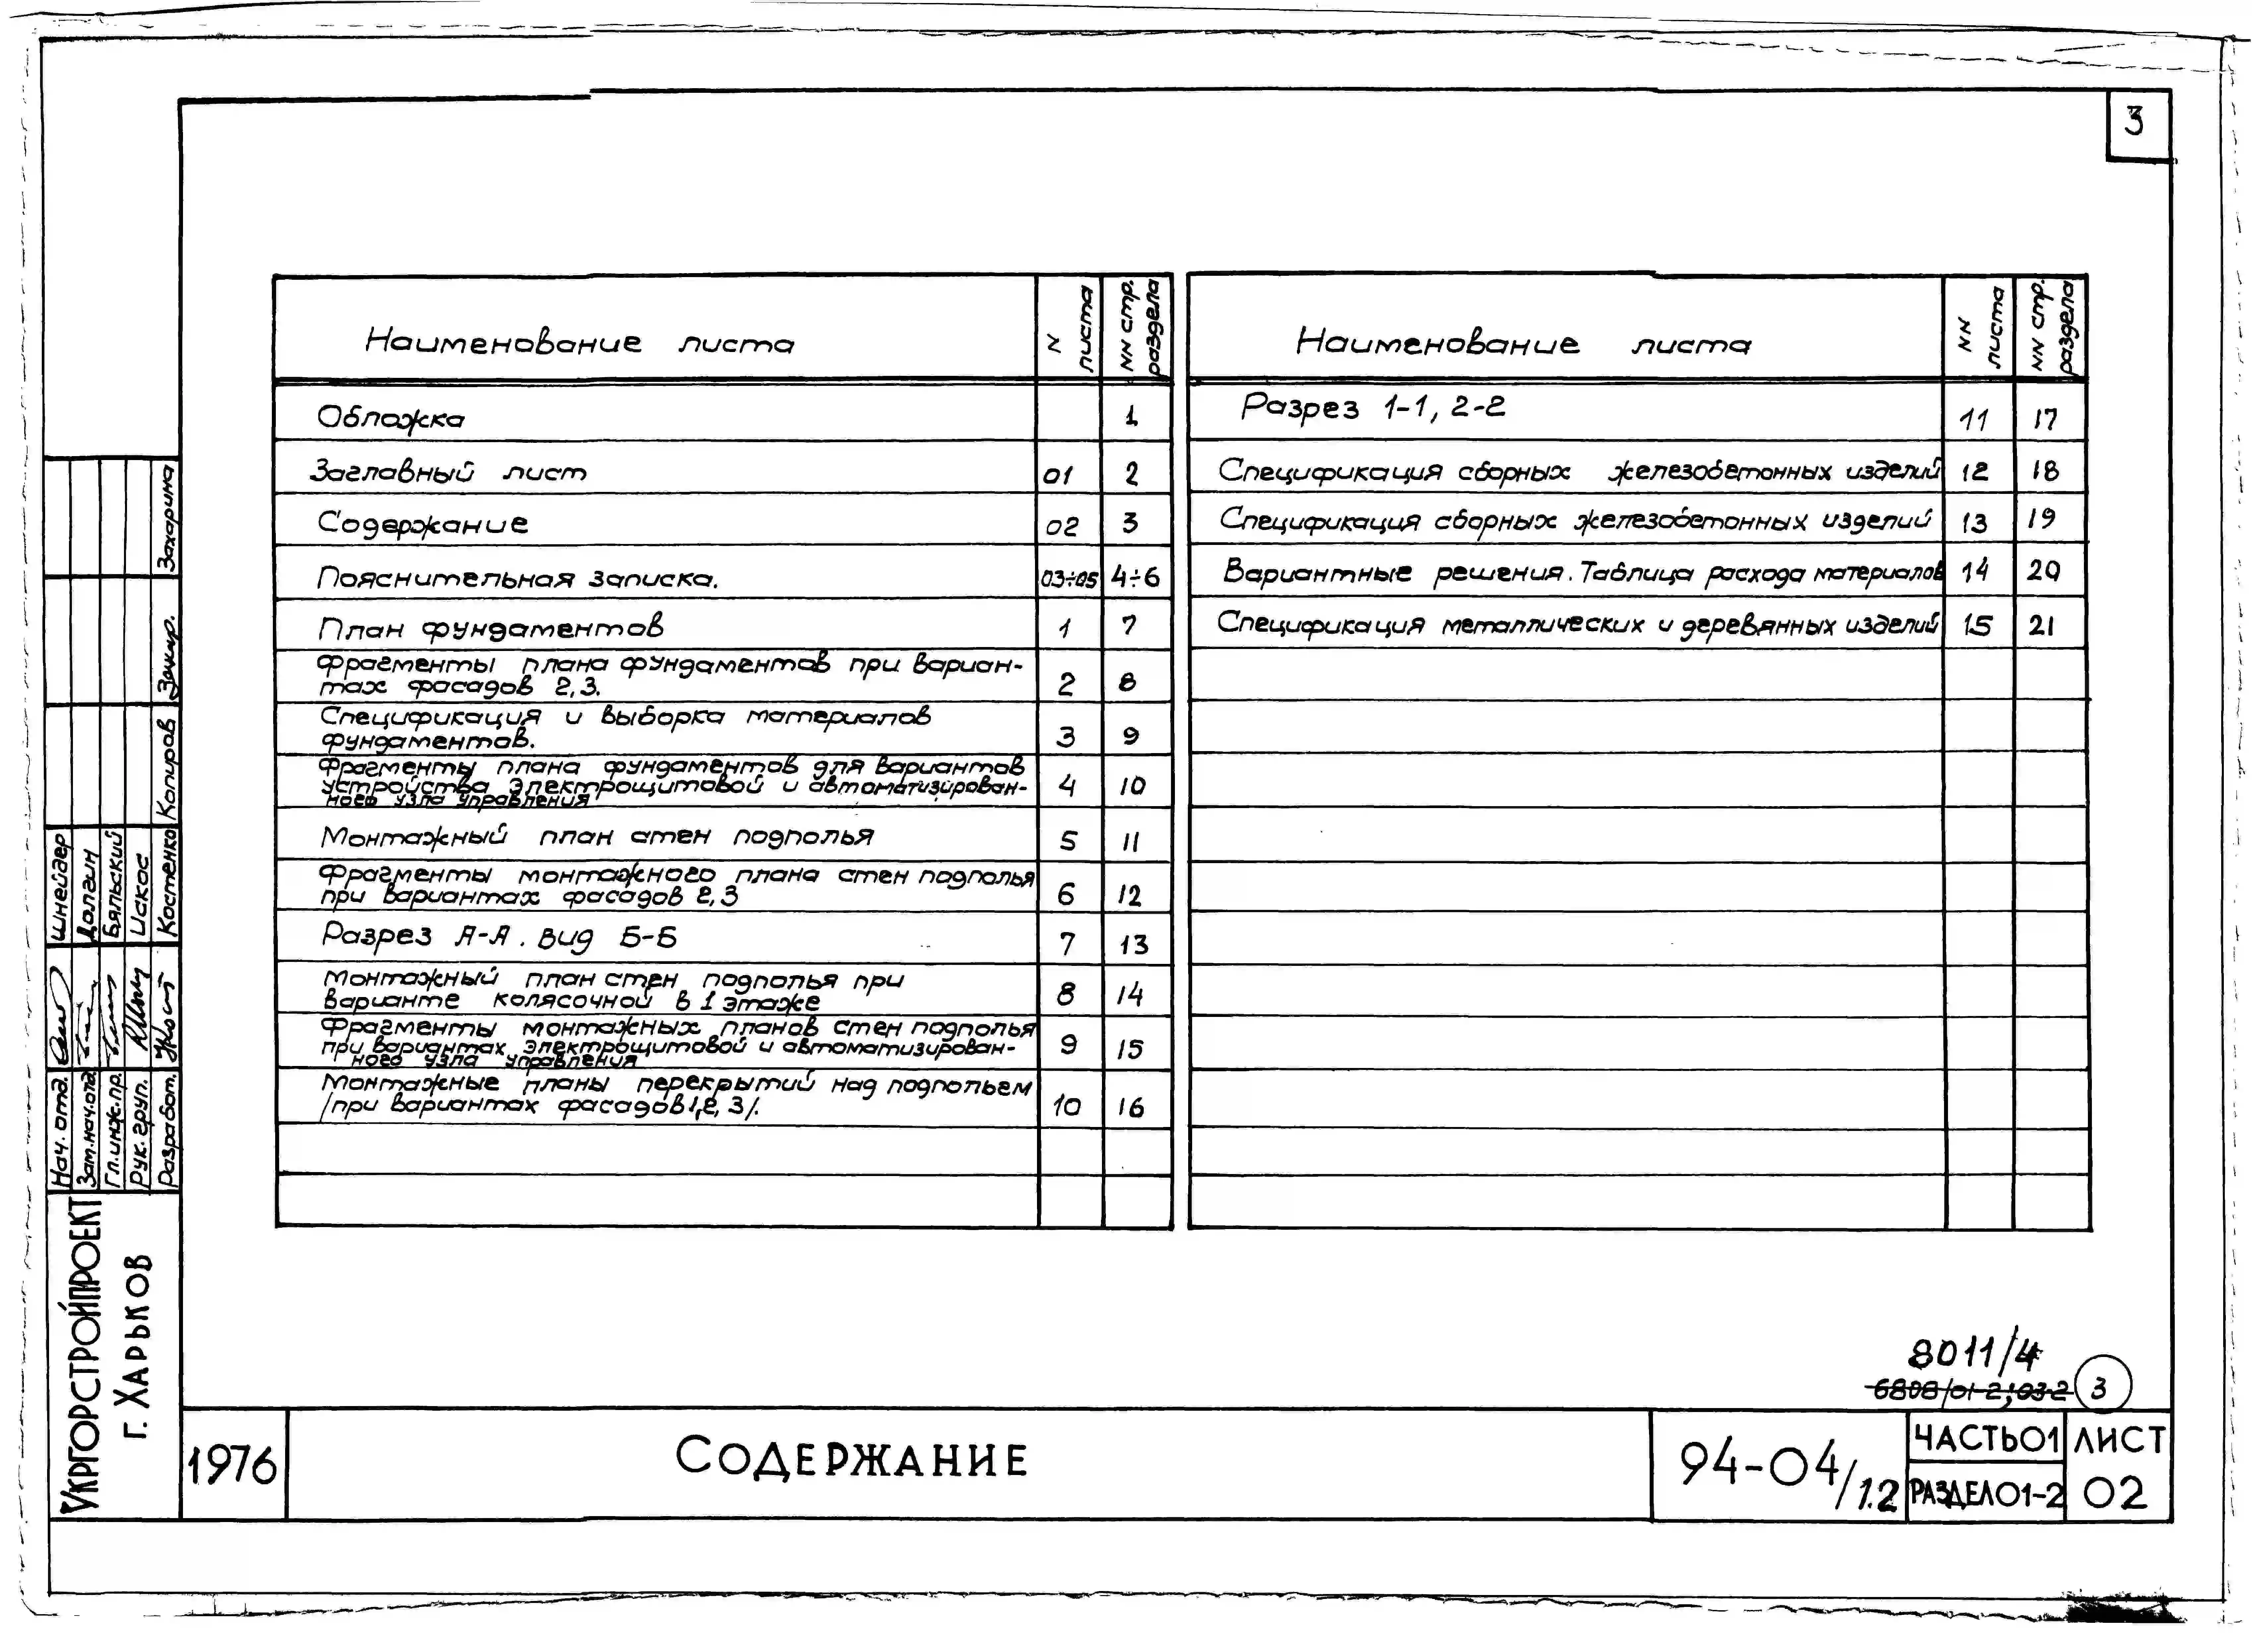 3
Наименование листа
N листа
NN стр. раздела
Обложка 1
Заглавный лист 01 2
Содержание 02 3
Пояснительная записка. 03÷05 4÷6
План фундаментов 1 7
Фрагменты плана фундаментов при вариан-
тах фасадов 2,3. 2 8
Спецификация и выборка материалов
фундаментов. 3 9
Фрагменты плана фундаментов для вариантов
устройства электрощитовой и автоматизирован-
ного узла управления 4 10
Монтажный план стен подполья 5 11
Фрагменты монтажного плана стен подполья
при вариантах фасадов 2,3 6 12
Разрез А-А. Вид Б-Б 7 13
Монтажный план стен подполья при
варианте колясочной в 1 этаже 8 14
Фрагменты монтажных планов стен подполья
при вариантах электрощитовой и автоматизирован-
ного узла управления 9 15
Монтажные планы перекрытий над подпольем
/при вариантах фасадов 1,2,3/. 10 16
Наименование листа
NN листа
NN стр. раздела
Разрез 1-1, 2-2 11 17
Спецификация сборных железобетонных изделий 12 18
Спецификация сборных железобетонных изделий 13 19
Вариантные решения. Таблица расхода материалов 14 20
Спецификация металлических и деревянных изделий 15 21
Нач. отд. Шнейдер
Зам.нач.отд. Долгин
Гл.инж.пр. Бяльский
Рук. груп. Искос
Разработ. Костенко
Копиров Захарина
Укргорстройпроект
г. Харьков
8011/4
6808/01-2;03-2
3
1976
Содержание
94-04/1.2
Часть 01
Раздел 01-2
Лист
02